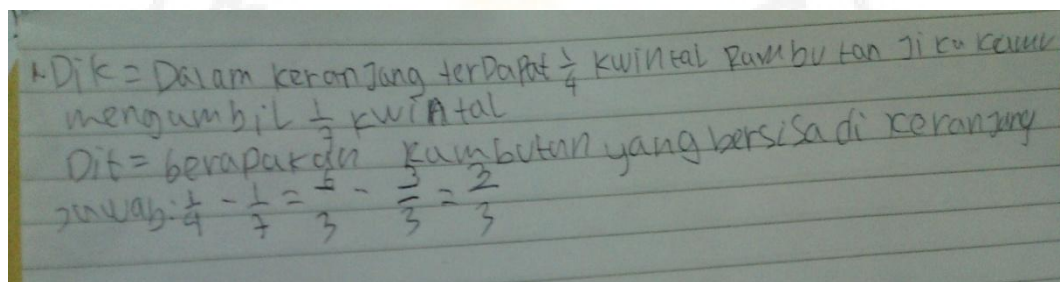 1. Dik = Dalam keranjang terdapat 1/4 kwintal Rambutan Jika kamu
mengambil 1/7 kwintal
Dit = berapakah Rambutan yang bersisa di keranjang
Jawab: 1/4 - 1/7 = 5/3 - 3/3 = 2/3